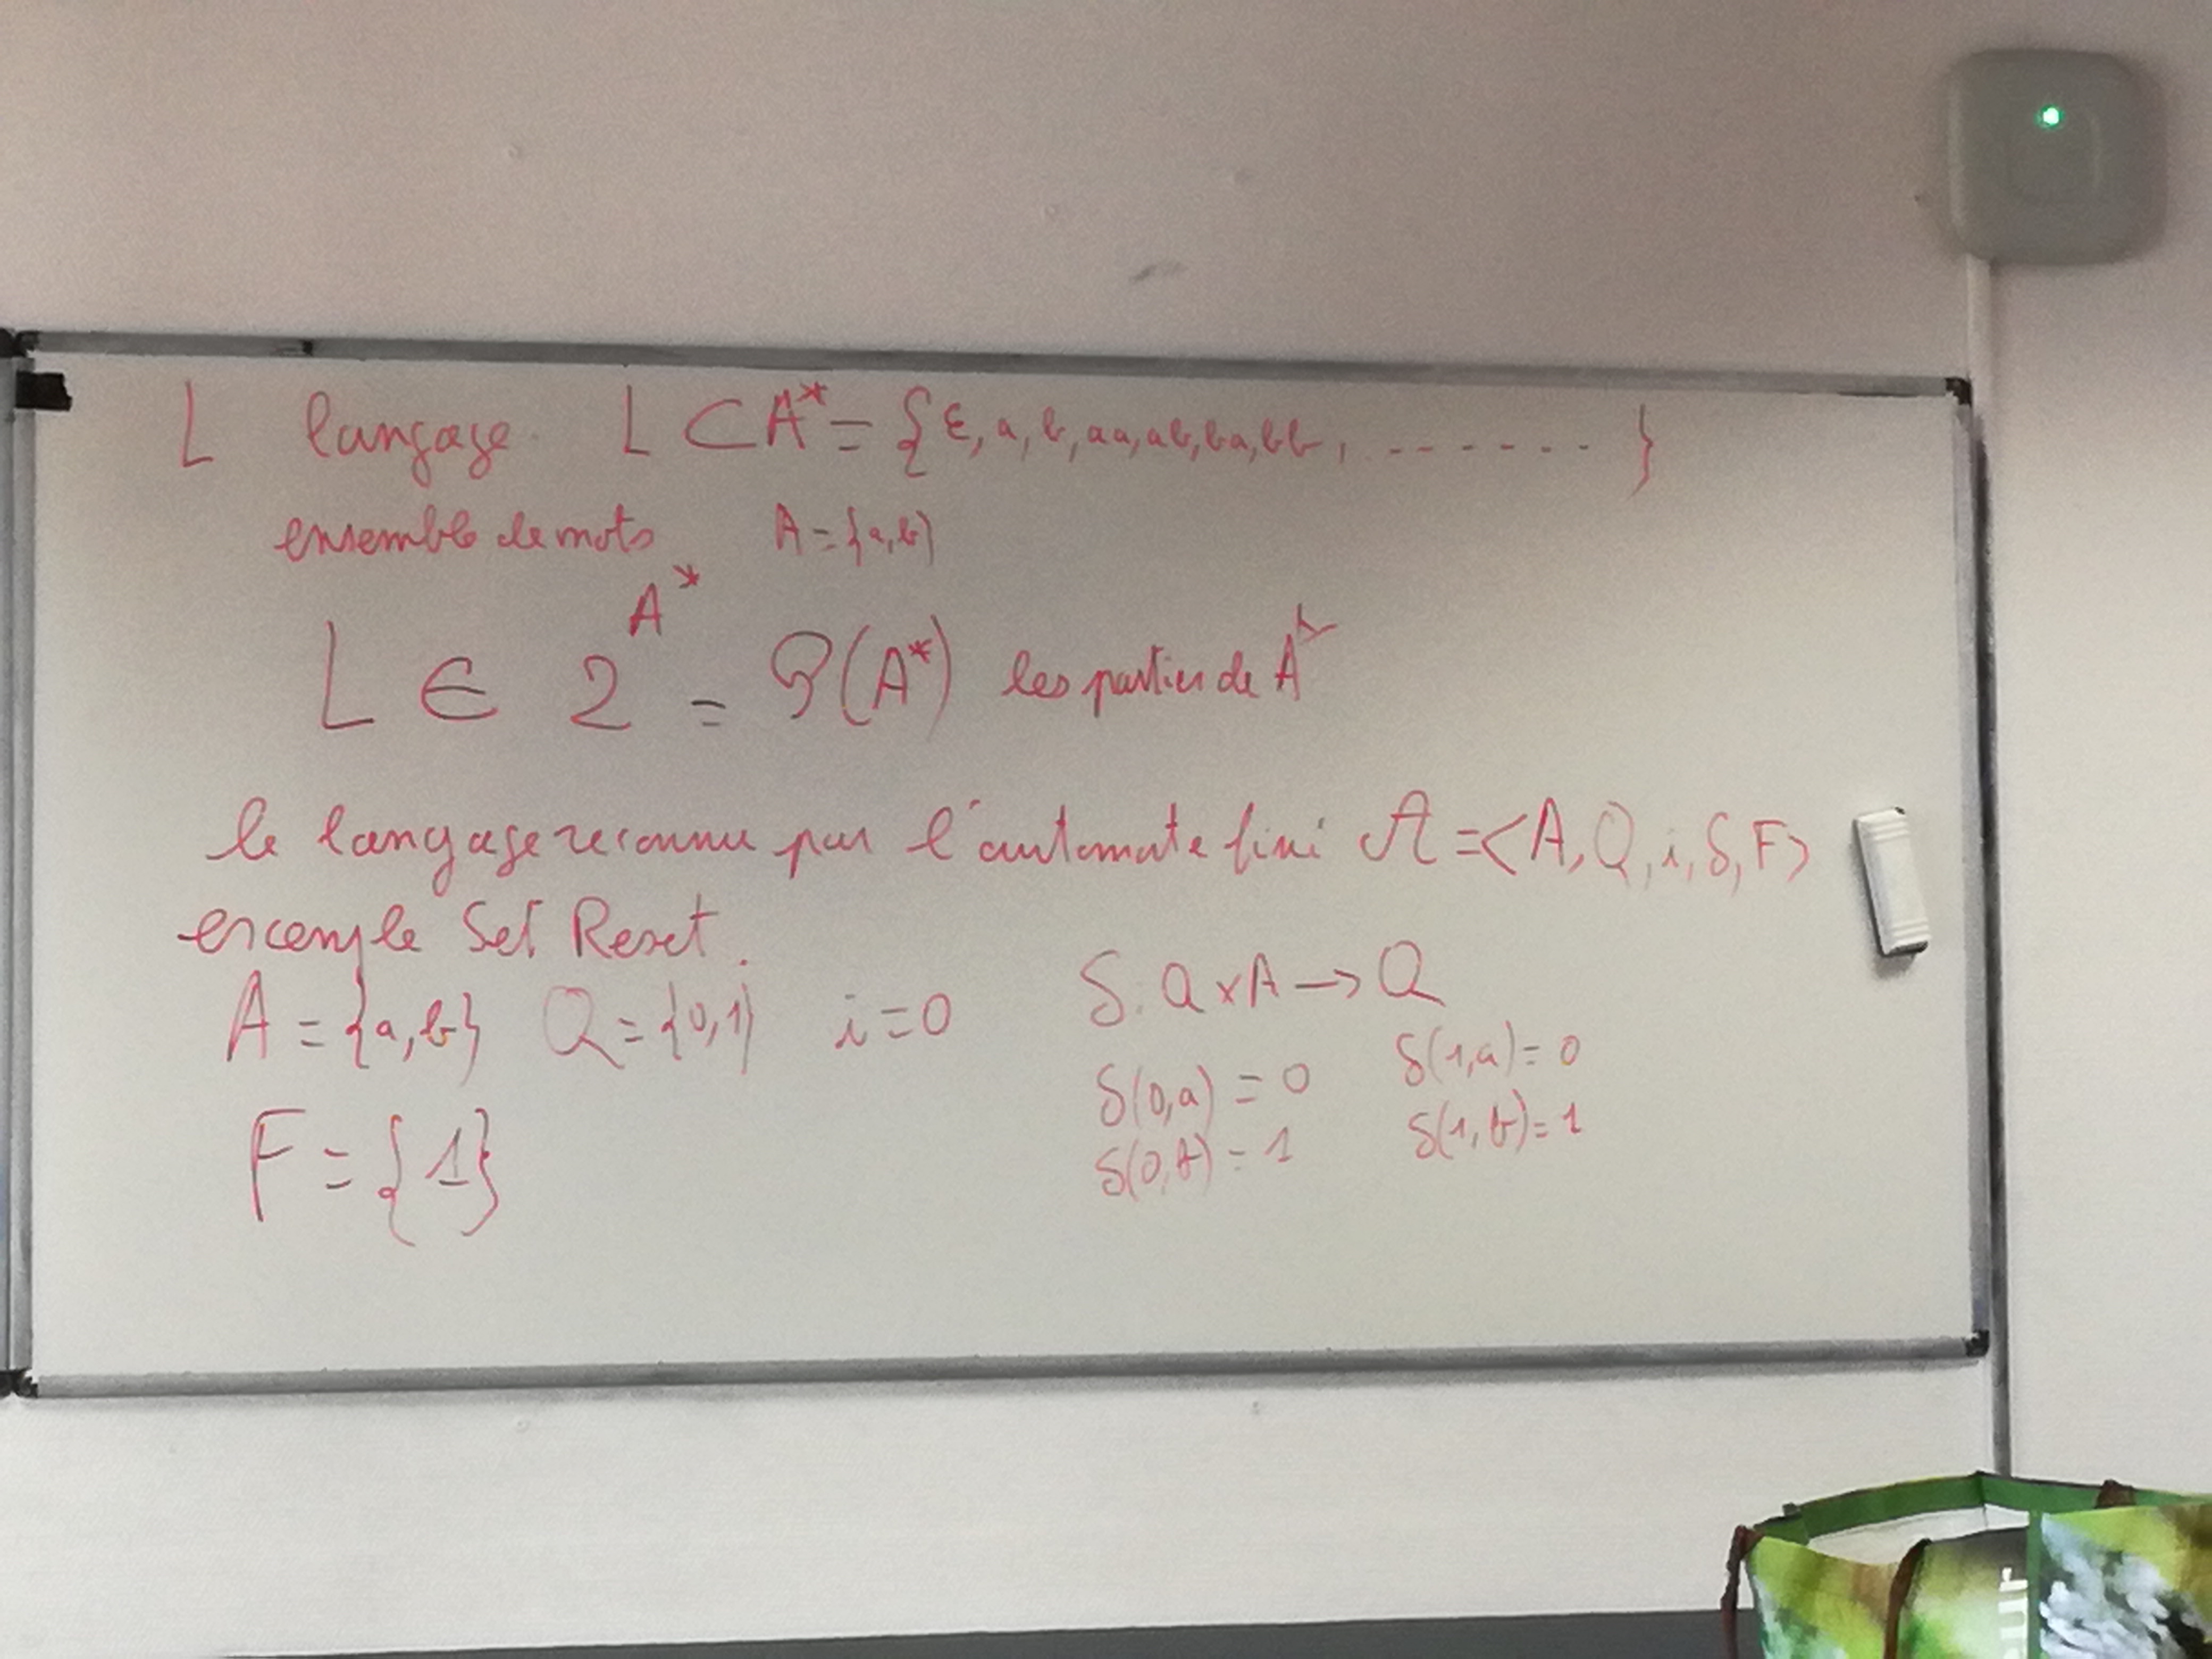 L langage. L ⊂ A* = {ε, a, b, aa, ab, ba, bb, ....... }
ensemble de mots A = {a,b}
L ∈ 2^A* = P(A*) les parties de A*
le langage reconnu par l'automate fini 𝒜 = <A, Q, i, δ, F>
exemple Set Reset.
A = {a,b} Q = {0,1} i = 0
F = {1}
δ: Q × A → Q
δ(0,a) = 0 δ(1,a) = 0
δ(0,b) = 1 δ(1,b) = 1